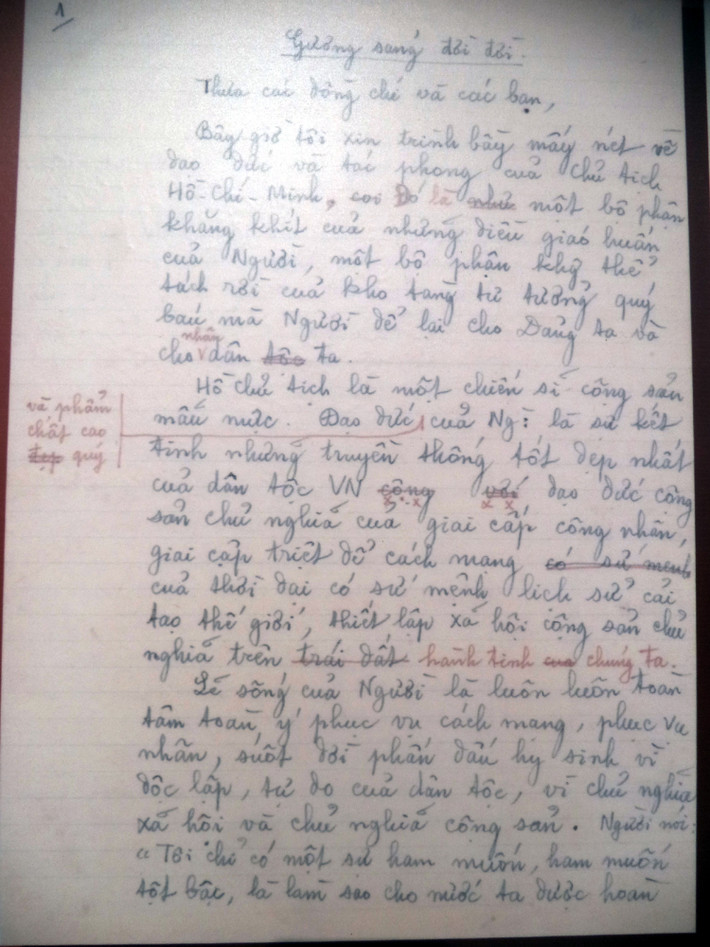 1
Gương sáng đời đời.
Thưa các đồng chí và các bạn,
Bây giờ tôi xin trình bày mấy nét về
đạo đức và tác phong của Chủ tịch
Hồ-Chí-Minh, coi đó là như một bộ phận
khăng khít của những điều giáo huấn
của Người, một bộ phận khg thể
tách rời của kho tàng tư tưởng quý
báu mà Người để lại cho Đảng ta và
nhân
cho dân tộc ta.
Hồ chủ tịch là một chiến sĩ cộng sản
và phẩm
chất cao
đẹp quý
mẫu mực. Đạo đức của Ng: là sự kết
tinh những truyền thống tốt đẹp nhất
của dân tộc VN cộng với đạo đức cộng
sản chủ nghĩa của giai cấp công nhân,
giai cấp triệt để cách mạng có sứ mệnh
của thời đại có sứ mệnh lịch sử cải
tạo thế giới, thiết lập xã hội cộng sản chủ
nghĩa trên trái đất hành tinh của chúng ta.
Lẽ sống của Người là luôn luôn toàn
tâm toàn ý phục vụ cách mạng, phục vụ
nhân, suốt đời phấn đấu hy sinh vì
độc lập, tự do của dân tộc, vì chủ nghĩa
xã hội và chủ nghĩa cộng sản. Người nói:
"Tôi chỉ có một sự ham muốn, ham muốn
tột bậc, là làm sao cho nước ta được hoàn